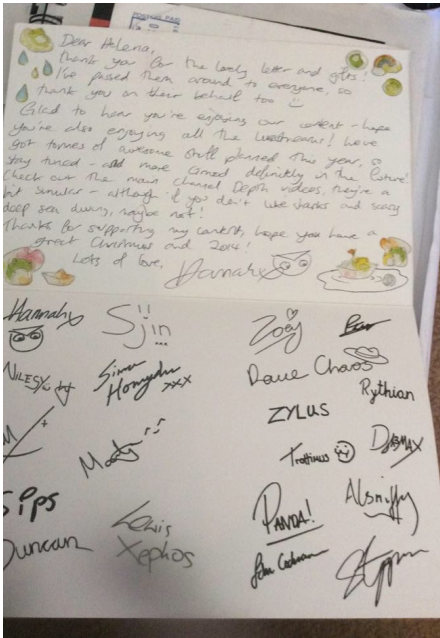 Dear Helena,
Thank you for the lovely letter and gifts!
I've passed them around to everyone, so
thank you on their behalf too
Glad to hear you're enjoying our content - hope
you're also enjoying all the livestreams! We've
got tonnes of awesome stuff planned this year, so
stay tuned - and more Gmod definitely in the future!
Check out the main channel Depth videos, they're a
bit similar - although if you don't like sharks and scary
deep sea diving, maybe not!
Thanks for supporting my content, hope you have a
great Christmas and 2014!
Lots of love,
Hannah x
Hannah x
Sjin
Zoey
Nilesy
Simon
Honeydew xxx
Dave Chaos
Rythian
ZYLUS
Mody
Trottimus
DJBMAX
Sips
Lewis
Xephos
PANDA!
Alsmiffy
Duncan
John Cochrane